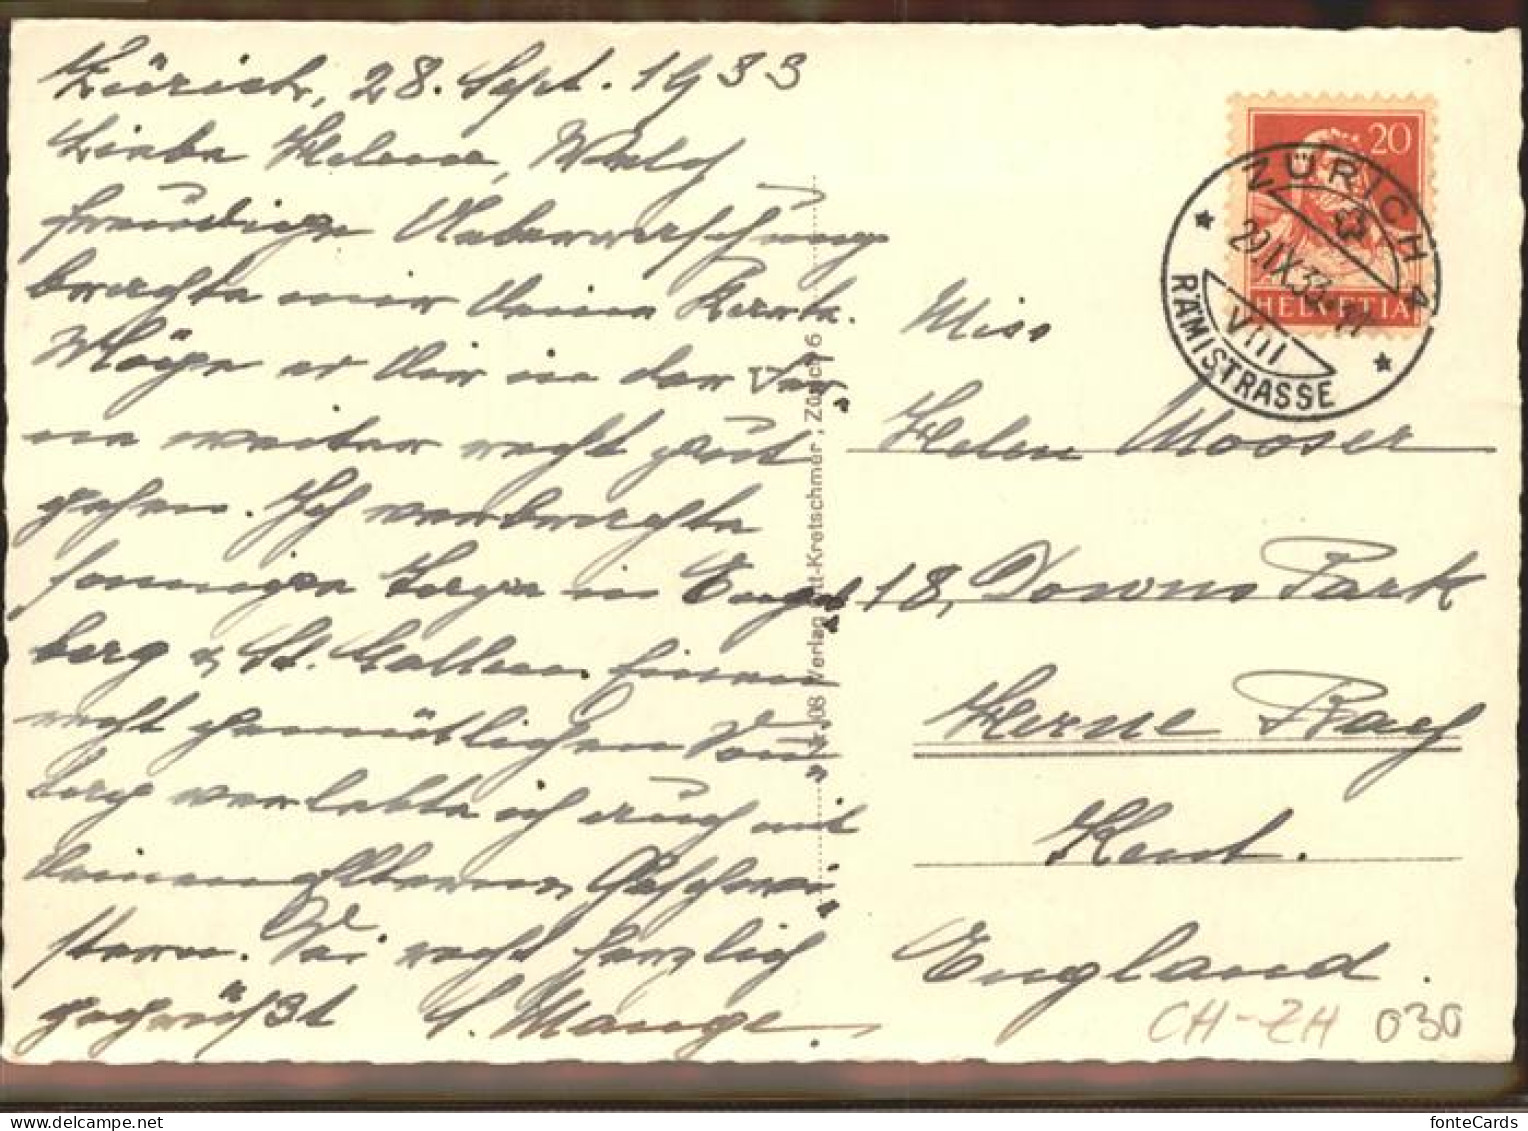 Zürich, 28. Sept. 1933
Liebe Helene, Welch
freudige Ueberraschung
brachte mir Deine Karte.
Möge es Dir in der Fer-
ne weiter recht gut
gehen. Ich verbrachte
sonnige Tage in Engel-
berg & St. Gallen. Einen
recht gemütlichen
verlebte ich auch mit
Deinen Eltern & Geschwi-
stern. Sei recht herzlich
gegrüßt
Miss
Helen Mooser
18, Downs Park
Herne Bay
Kent.
England.
CH-ZH 030
20
HELVETIA
ZÜRICH 4
IX.33
VIII
RÄMISTRASSE
Kretschmer, Zürich 6
Verlag
fonteCards